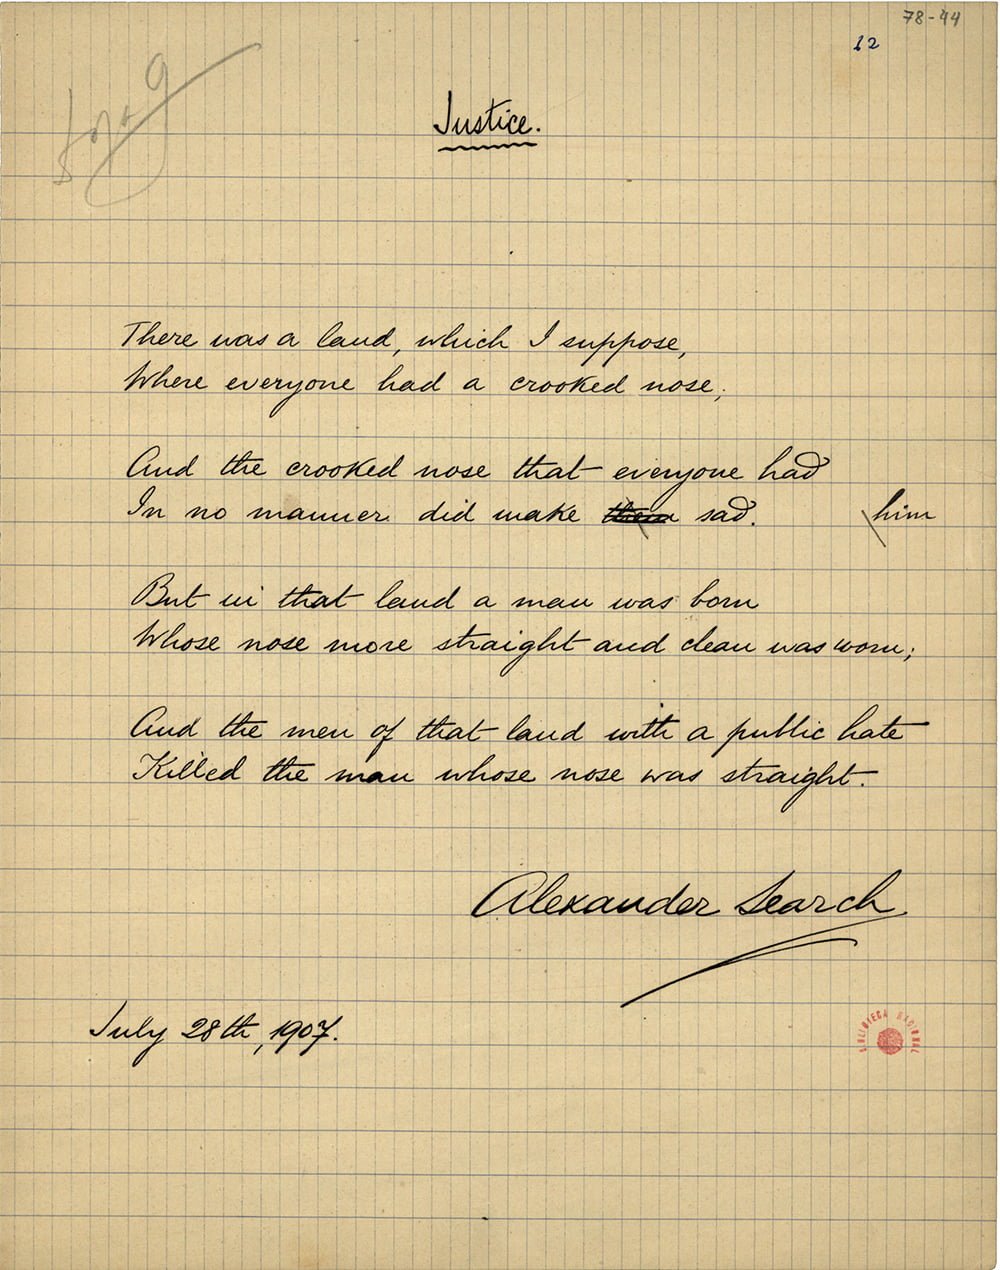 78-44
12
Justice.
There was a land, which I suppose,
Where everyone had a crooked nose;
And the crooked nose that everyone had
In no manner did make them sad. him
But in that land a man was born
Whose nose more straight and clean was worn;
And the men of that land with a public hate
Killed the man whose nose was straight.
Alexander Search
July 28th, 1907.
BIBLIOTECA NACIONAL